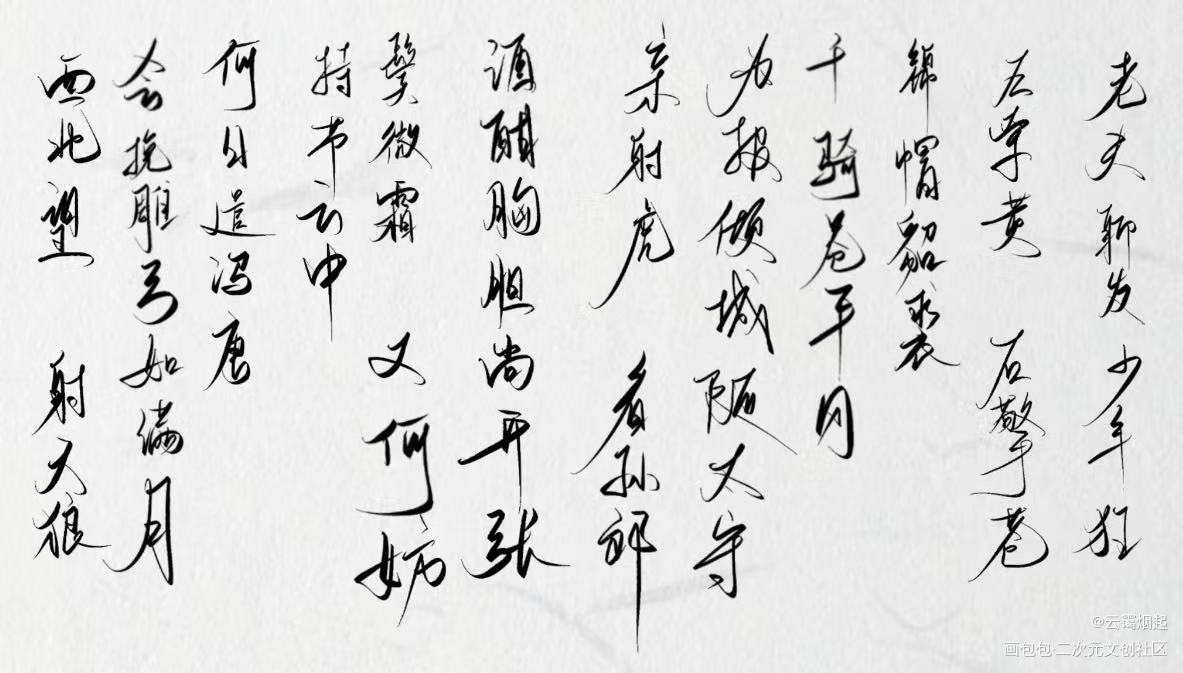 老夫聊发少年狂
左牵黄 右擎苍
锦帽貂裘
千骑卷平冈
为报倾城随太守
亲射虎 看孙郎
酒酣胸胆尚开张
鬓微霜 又何妨
持节云中
何日遣冯唐
会挽雕弓如满月
西北望 射天狼
@云霭烟起
画包包·二次元文创社区